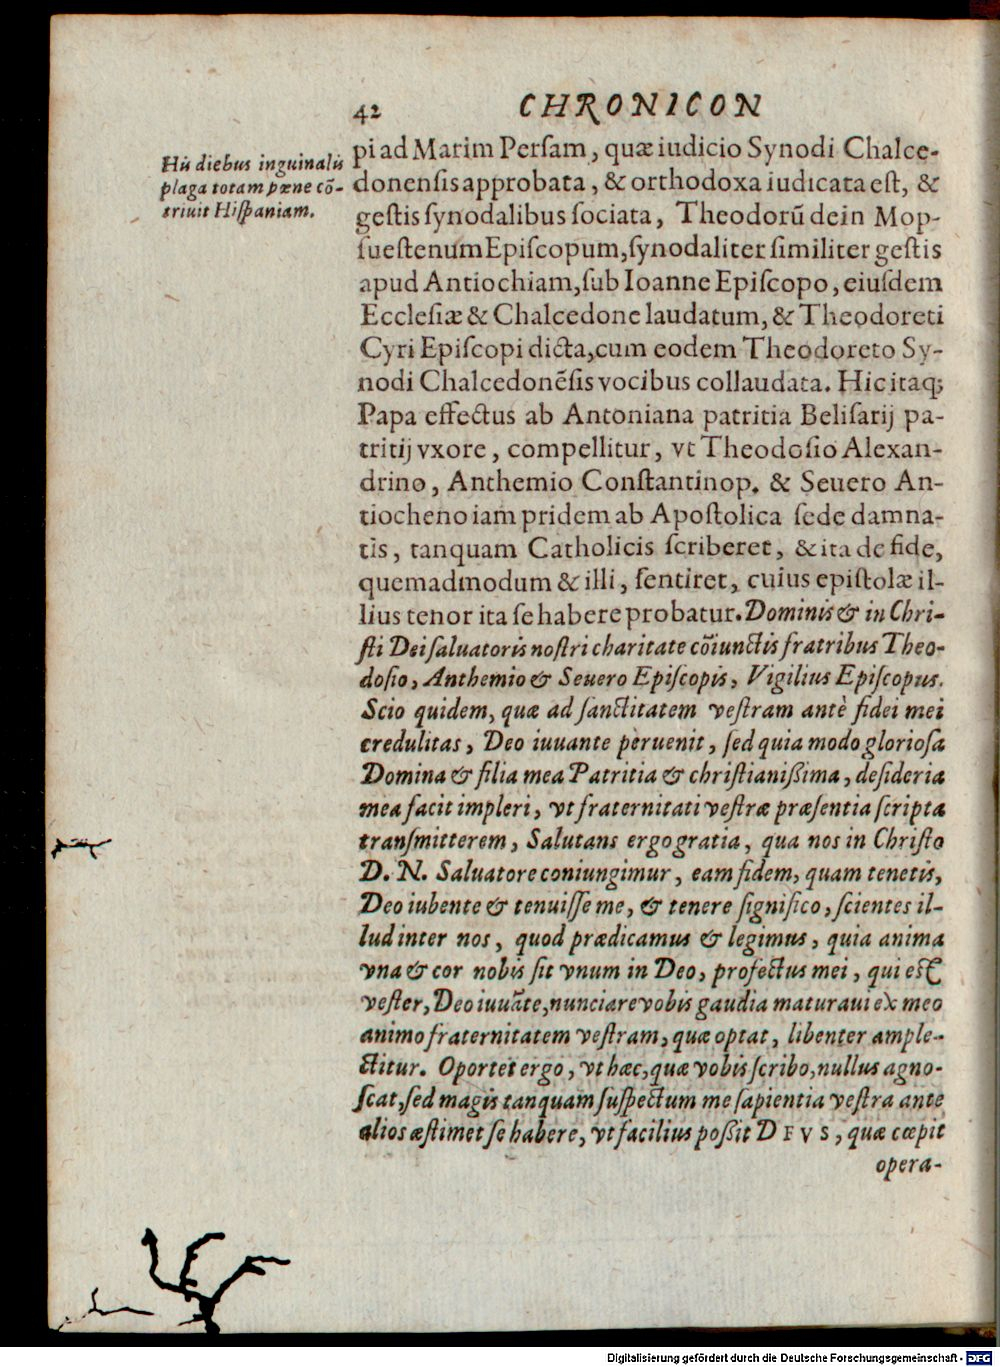 42 CHRONICON
Hii diebus inguinalis
plaga totam pæne cõ-
triuit Hiſpaniam.
pi ad Marim Perſam, quæ iudicio Synodi Chalce-
donenſis approbata, & orthodoxa iudicata eſt, &
geſtis ſynodalibus ſociata, Theodorũ dein Mop-
ſueſtenum Epiſcopum, ſynodaliter ſimiliter geſtis
apud Antiochiam, ſub Ioanne Epiſcopo, eiuſdem
Eccleſiæ & Chalcedone laudatum, & Theodoreti
Cyri Epiſcopi dicta, cum eodem Theodoreto Sy-
nodi Chalcedonẽſis vocibus collaudata. Hic itaq;
Papa effectus ab Antoniana patritia Beliſarij pa-
tritij vxore, compellitur, vt Theodoſio Alexan-
drino, Anthemio Conſtantinop. & Seuero An-
tiocheno iam pridem ab Apoſtolica ſede damna-
tis, tanquam Catholicis ſcriberet, & ita de fide,
quemadmodum & illi, ſentiret, cuius epiſtolæ il-
lius tenor ita ſe habere probatur. Dominis & in Chri-
ſti Dei ſaluatoris noſtri charitate cõiunctis fratribus Theo-
doſio, Anthemio & Seuero Epiſcopis, Vigilius Epiſcopus.
Scio quidem, quæ ad ſanctitatem veſtram antè fidei mei
credulitas, Deo iuuante peruenit, ſed quia modo glorioſa
Domina & filia mea Patritia & chriſtianißima, deſideria
mea facit impleri, vt fraternitati veſtræ præſentia ſcripta
tranſmitterem, Salutans ergo gratia, qua nos in Chriſto
D. N. Saluatore coniungimur, eam fidem, quam tenetis,
Deo iubente & tenuiſſe me, & tenere ſignifico, ſcientes il-
lud inter nos, quod prædicamus & legimus, quia anima
vna & cor nobis ſit vnum in Deo, profectus mei, qui eſt
veſter, Deo iuuãte, nunciare vobis gaudia maturaui ex meo
animo fraternitatem veſtram, quæ optat, libenter ample-
ctitur. Oportet ergo, vt hæc, quæ vobis ſcribo, nullus agno-
ſcat, ſed magis tanquam ſuſpectum me ſapientia veſtra ante
alios æſtimet ſe habere, vt facilius poßit DEVS, quæ cœpit
opera-
Digitalisierung gefördert durch die Deutsche Forschungsgemeinschaft - DFG